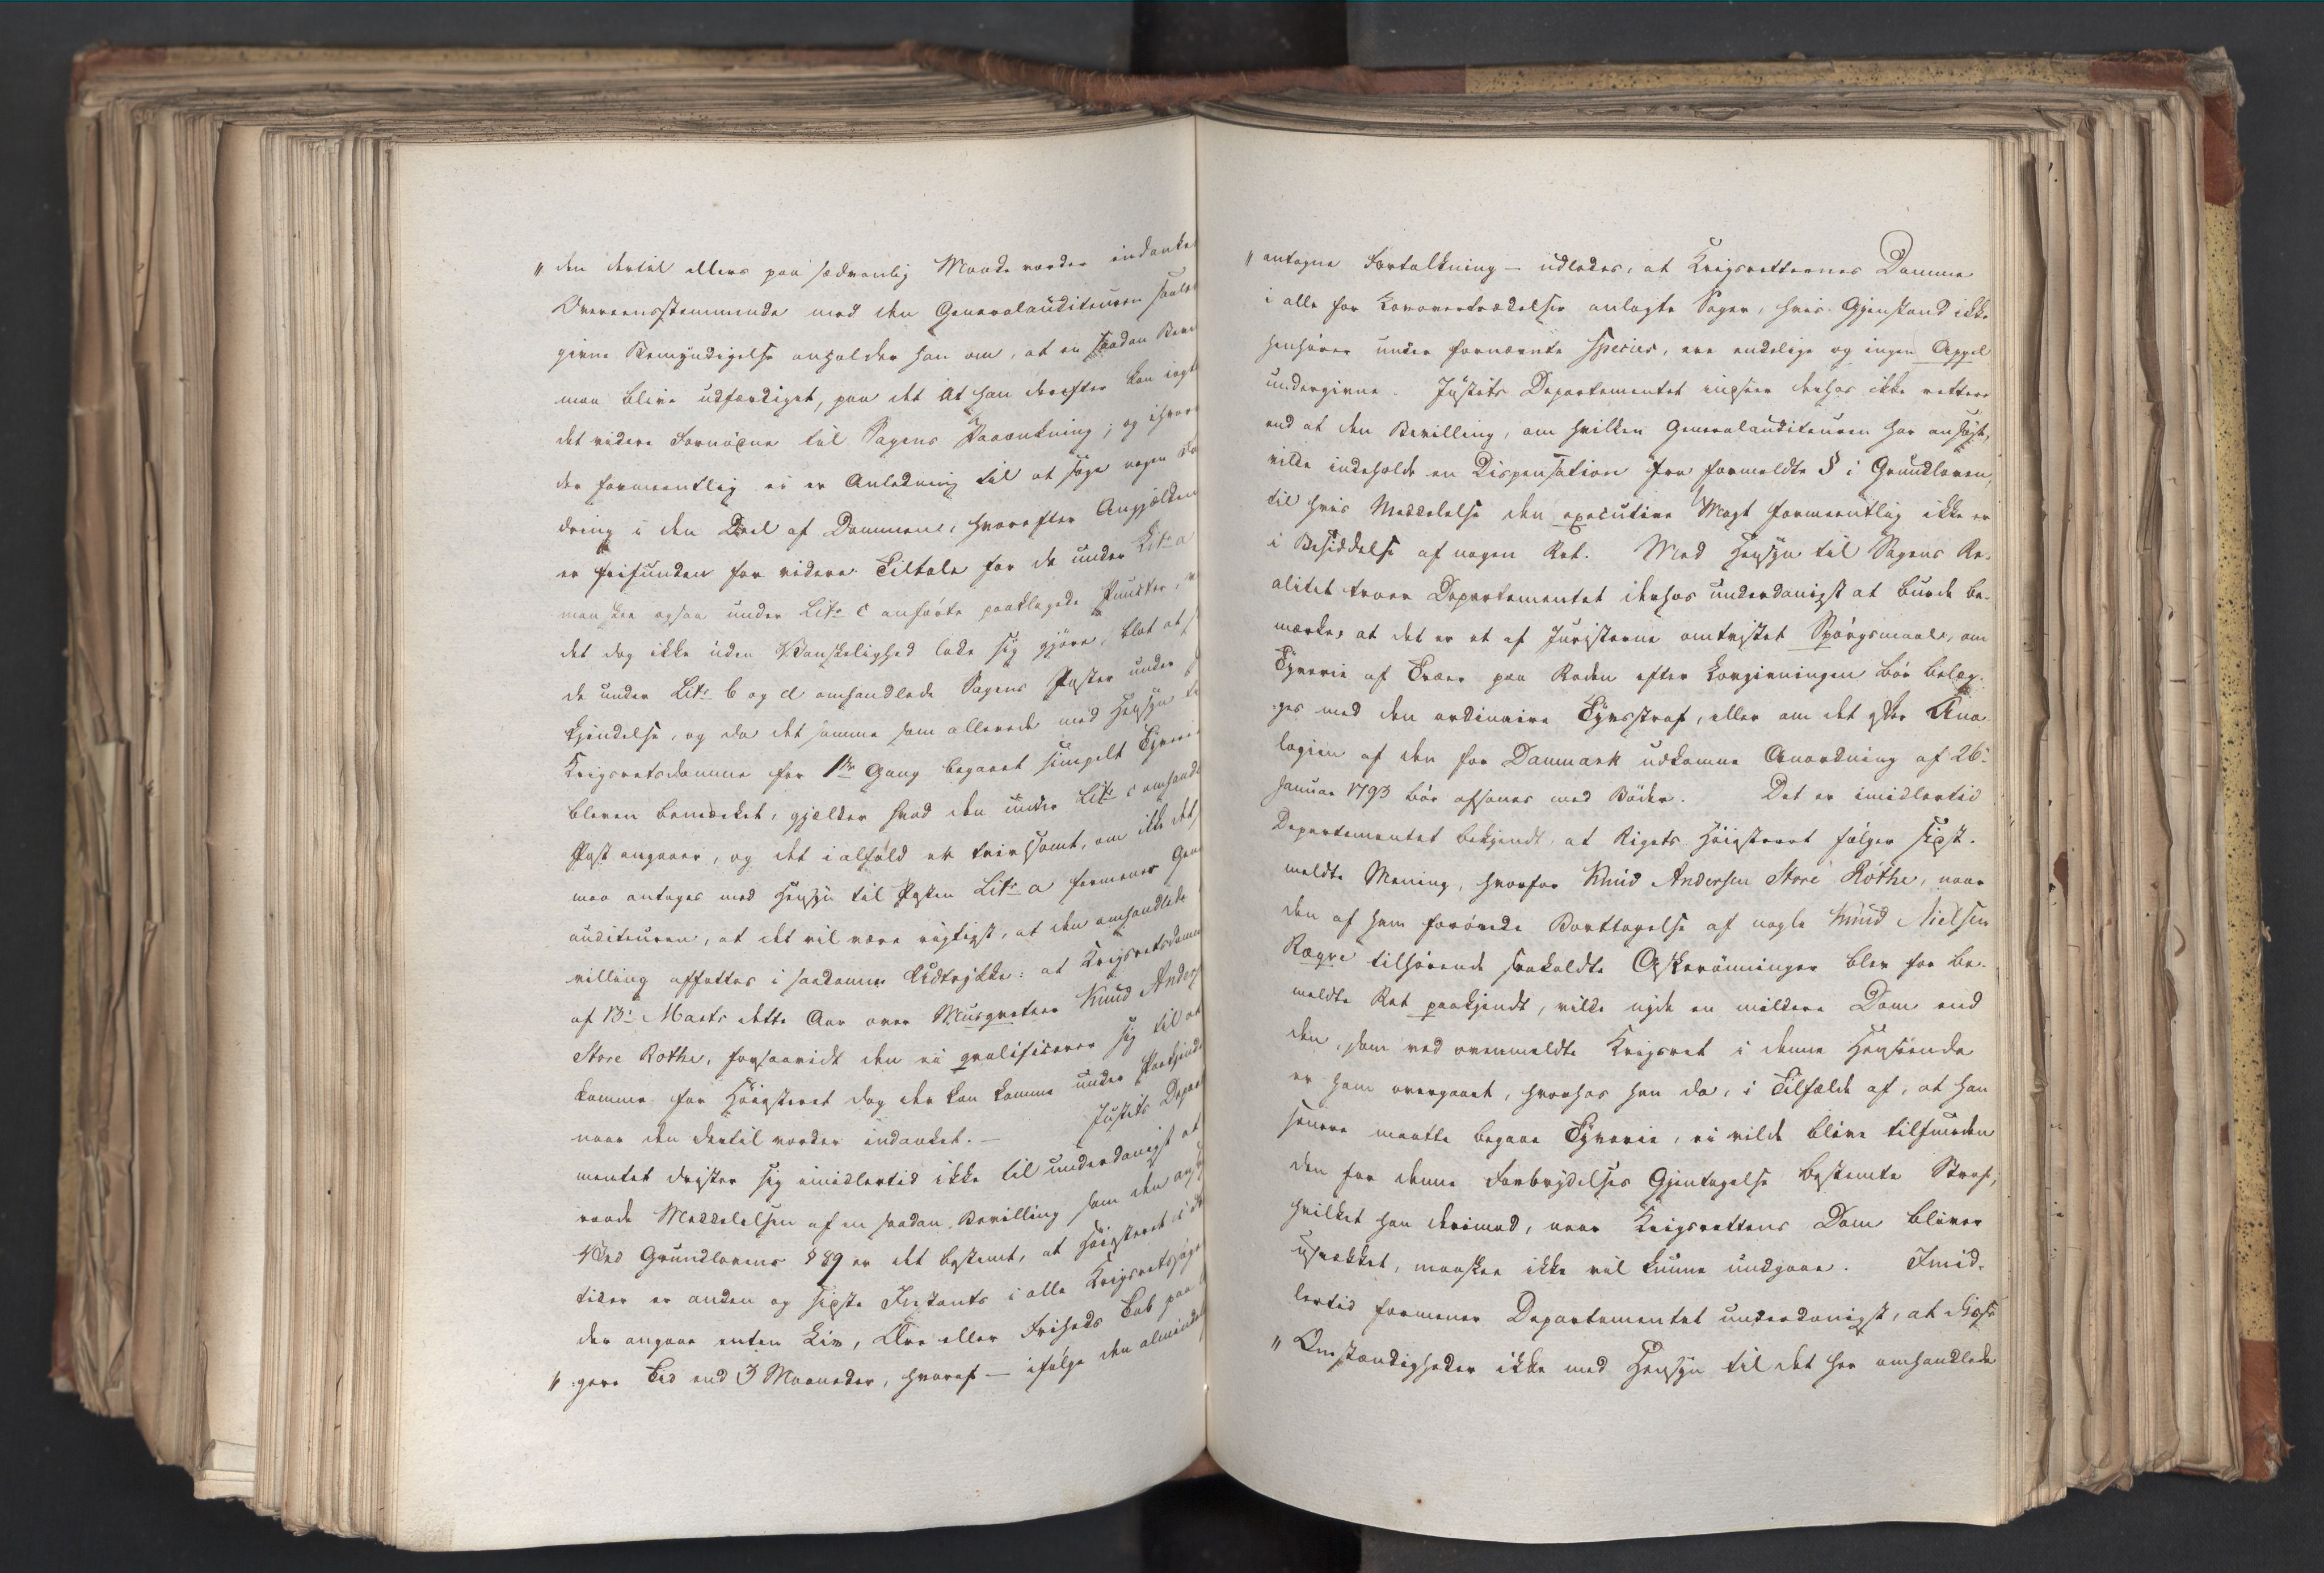 „ den dertil ellers paa sædvanlig Maade vorder indanket
Overeensstemmende med den Generalauditeuren saaledes
givne Bemyndigelse anholder han om, at en saadan Bevil
maa blive udfærdiget, paa det at han derefter kan iagt
det videre Fornødne til Sagens Paaankning; og ihvor
der formeentlig ei er Anledning til at søge nogen For
dring i den Deel af Dommen, hvorefter Angjældende
er frifunden for videre Tiltale for de under Litr a
maaskee ogsaa under Litr c anførte paaklagede Puncter,
det dog ikke uden Vanskelighed lade sig gjøre, blot at
de under Litr b og d omhandlede Sagens Poster under
kjendelse, og da det samme som allerede med Hensyn til
Krigsretsdomme for 1ste Gang begaaet simpelt Tyverie
bleven bemærket, gjelder hvad den under Litr c omhandlede
Post angaaer, og det i alfald er tvivlsomt, om ikke det
maa antages med Hensyn til Posten Litr a formener General
auditeuren, at det vil være rigtigst, at den omhandlede
villing affattes i saadanne Udtrykke: at Krigsretsdommen
af 13de Marts dette Aar over Musqueteer Knud Anders
Store Rothe, forsaavidt den ei qvalificerer sig til at
komme for Høiesteret dog der kan komme under Paakjendelse
naar den dertil vorder indanket. – Justits Depar
mentet drister sig imidlertid ikke til underdanigst at
raade Meddelelsen af en saadan Bevilling som den ansøgte
Ved Grundlovens § 89 er det bestemt, at Høiesteret i
tider er anden og sidste Instants i alle Krigsretssager
der angaae enten Liv, Ære eller Friheds Tab paa
„ gere Tid end 3 Maaneder, hvoraf – ifølge den almindelig
„ antagne Fortolkning – udledes, at Krigsretternes Domme
i alle for Lovovertrædelser anlagte Sager, hvis Gjenstand ikke
henhører under fornævnte Species, ere endelige og ingen Appel
undergivne. Justits Departementet indseer derhos ikke rettere
end at den Bevilling, om hvilken Generalauditeuren har ansøgt,
vilde indeholde en Dispensation fra formeldte § i Grundloven,
til hvis Meddelelse den executive Magt formeentlig ikke er
i Besiddelse af nogen Ret. Med Hensyn til Sagens Re-
alitet troer Departementet derhos underdanigst at burde be-
mærke, at det er et af Juristerne omtvistet Spørgsmaal, om
Tyverie af Træer paa Roden efter Lovgivningen bør belæg-
ges med den ordinaire Tyvsstraf, eller om det efter Ana-
logien af den for Danmark udkomne Anordning af 26de
Januar 1793 bør afsones med Bøder. Det er imidlertid
Departementet bekjendt, at Rigets Høiesteret følger sidst-
meldte Mening, hvorfor Knud Andersen Store Rothe, naar
den af ham forøvede Borttagelse af nogle Knud Nielsen
Rægve tilhørende saakaldte Askerønninger blev for be-
meldte Ret paakjendt, vilde nyde en mildere Dom end
den, som ved ovenmeldte Krigsret i denne Henseende
er ham overgaaet, hvorhos han da, i Tilfælde af, at han
senere maatte begaae Tyverie, ei vilde blive tilfunden
den for denne Forbrydelses Gjentagelse bestemte Straf,
hvilket han derimod, naar Krigsrettens Dom bliver
usvækket, maaskee ikke vil kunne undgaae. Imid-
lertid formener Departementet underdanigst, at disse
„ Omstændigheder ikke med Hensyn til det her omhandlede